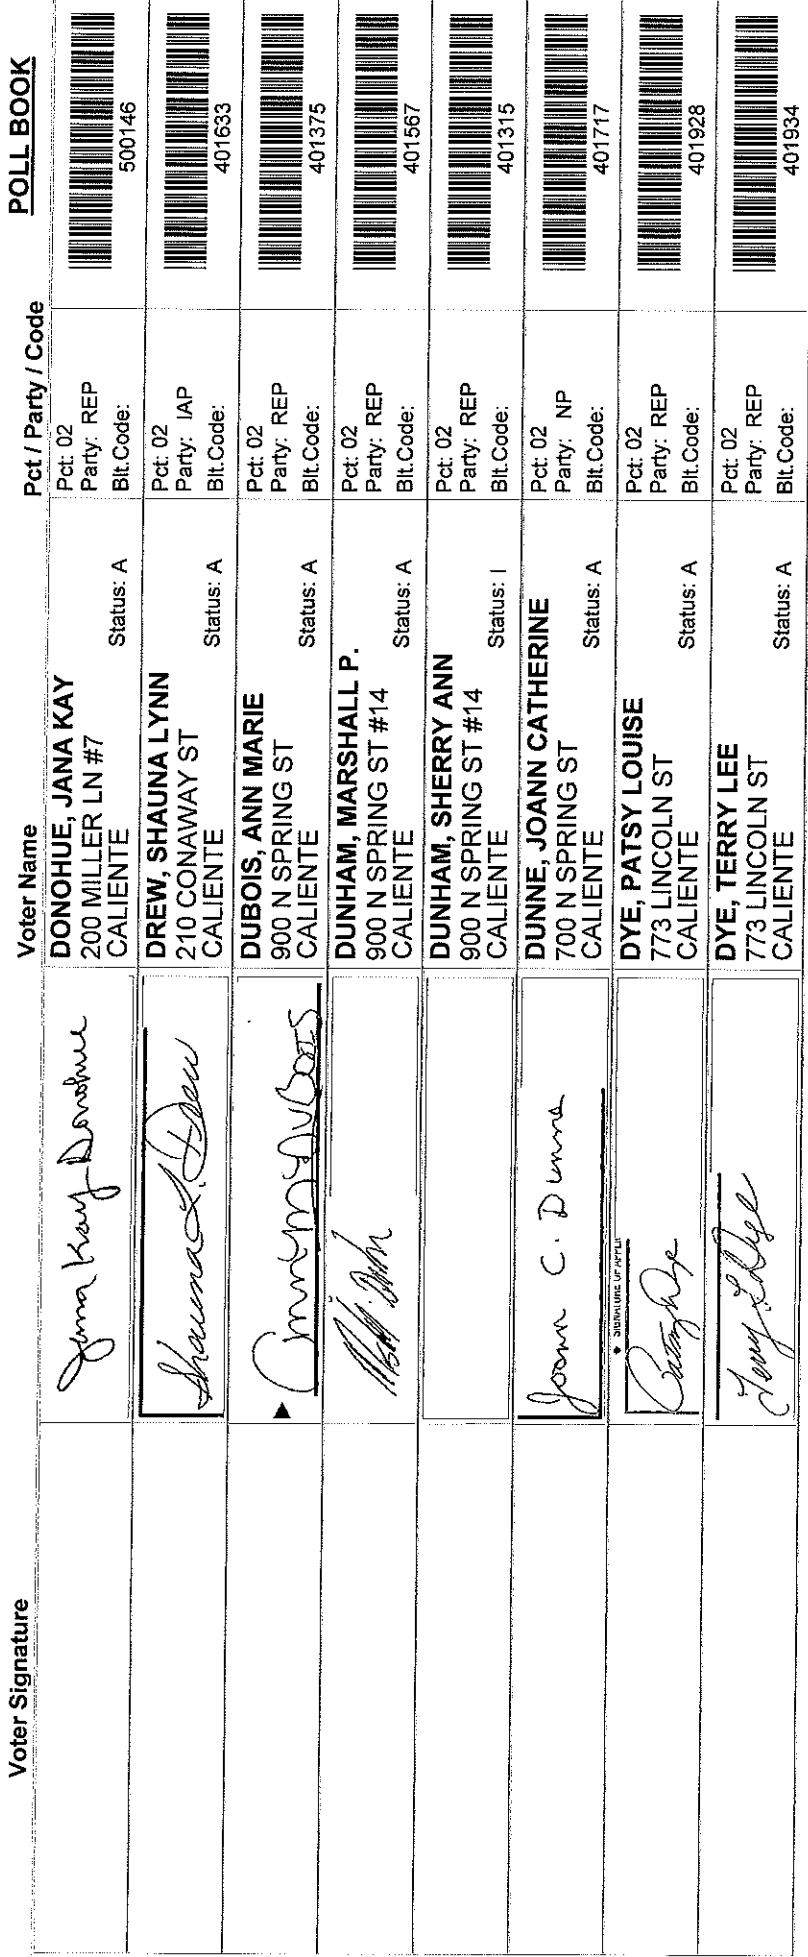 POLL BOOK
Voter Signature Voter Name Pct / Party / Code
Jana Kay Donohue
DONOHUE, JANA KAY
200 MILLER LN #7
CALIENTE Status: A
Pct: 02
Party: REP
Blt.Code:
500146
Shauna L. Drew
DREW, SHAUNA LYNN
210 CONAWAY ST
CALIENTE Status: A
Pct: 02
Party: IAP
Blt.Code:
401633
Ann M DuBois
DUBOIS, ANN MARIE
900 N SPRING ST
CALIENTE Status: A
Pct: 02
Party: REP
Blt.Code:
401375
DUNHAM, MARSHALL P.
900 N SPRING ST #14
CALIENTE Status: A
Pct: 02
Party: REP
Blt.Code:
401567
DUNHAM, SHERRY ANN
900 N SPRING ST #14
CALIENTE Status: I
Pct: 02
Party: REP
Blt.Code:
401315
Joann C. Dunne
DUNNE, JOANN CATHERINE
700 N SPRING ST
CALIENTE Status: A
Pct: 02
Party: NP
Blt.Code:
401717
SIGNATURE OF
Patsy Dye
DYE, PATSY LOUISE
773 LINCOLN ST
CALIENTE Status: A
Pct: 02
Party: REP
Blt.Code:
401928
Terry L Dye
DYE, TERRY LEE
773 LINCOLN ST
CALIENTE Status: A
Pct: 02
Party: REP
Blt.Code:
401934